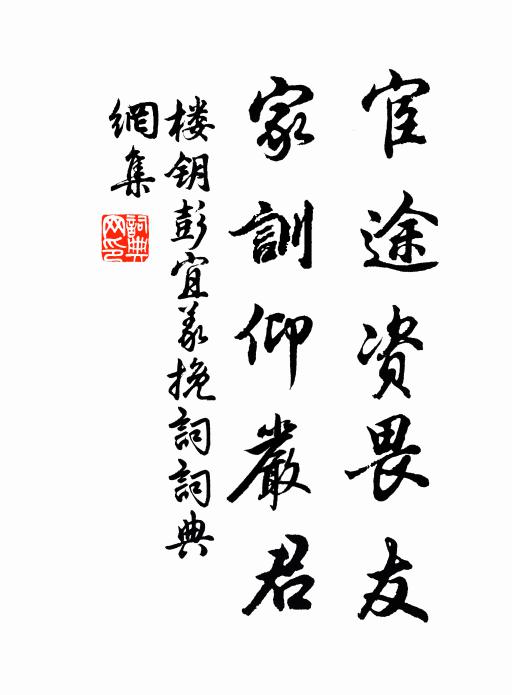 宦途资畏友
家訓仰嚴君
楼钥彭宜義挽詞詞典
網集
詞典
网印